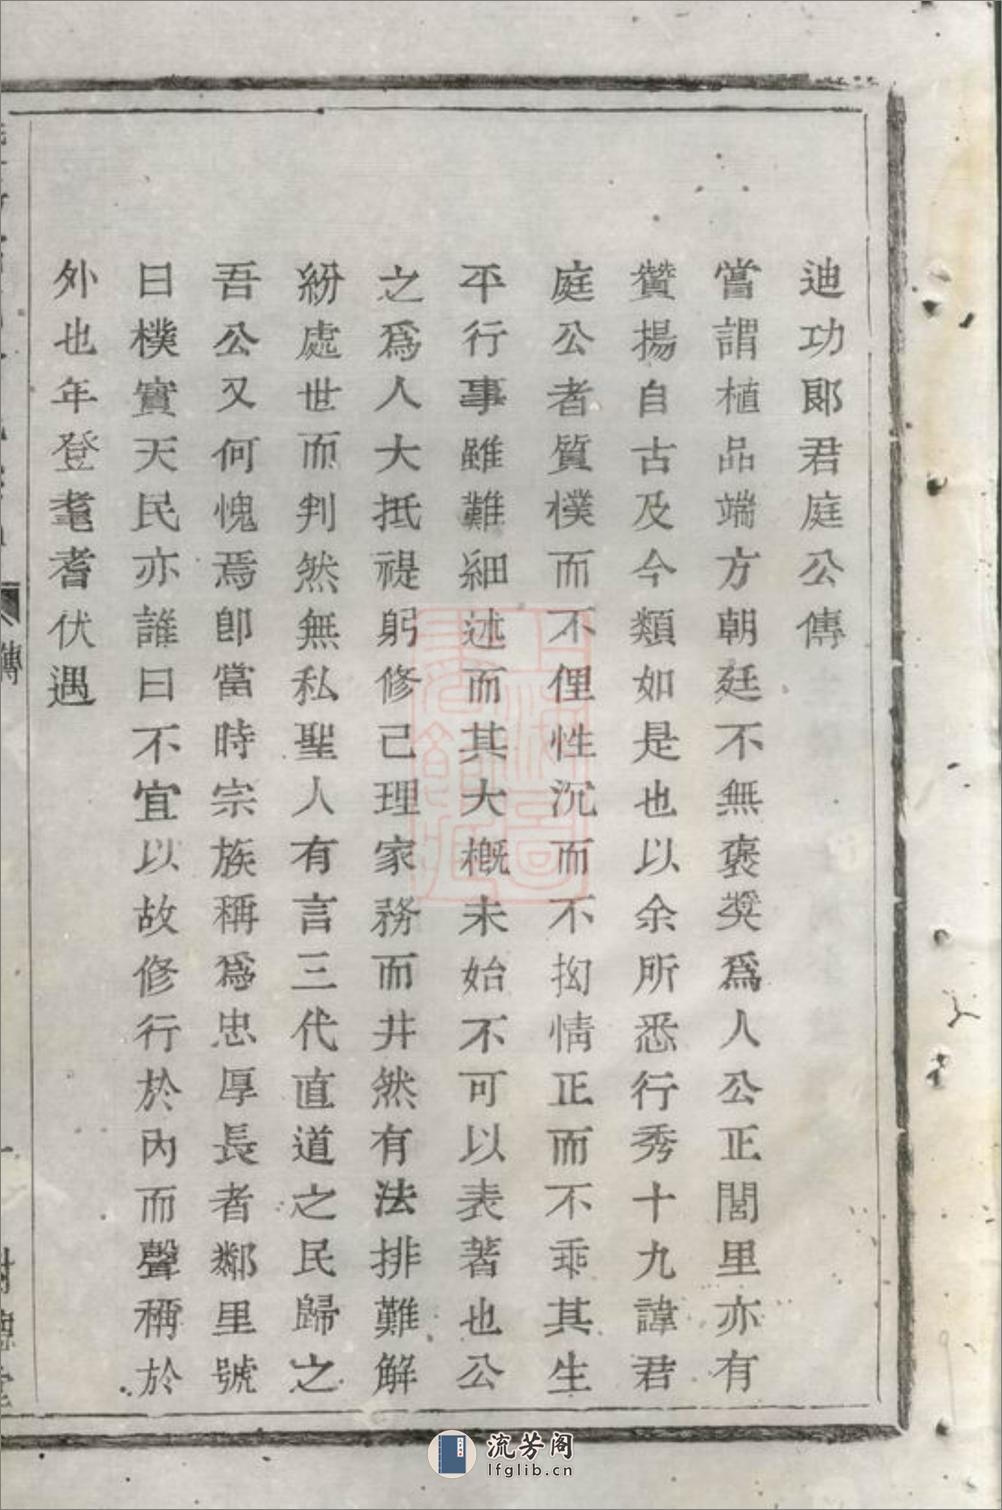 迪功郎君庭公傳
嘗謂植品端方朝廷不無褒獎爲人公正閭里亦有
贊揚自古及今類如是也以余所悉行秀十九諱君
庭公者質樸而不俚性沉而不拘情正而不乖其生
平行事雖難細述而其大槪未始不可以表著也公
之爲人大抵禔躬修己理家務而井然有法排難解
紛處世而判然無私聖人有言三代直道之民歸之
吾公又何愧焉卽當時宗族稱爲忠厚長者鄰里號
曰樸實天民亦誰曰不宜以故修行於內而聲稱於
外也年登耄耆伏遇
傳
流芳阁
lfglib.cn